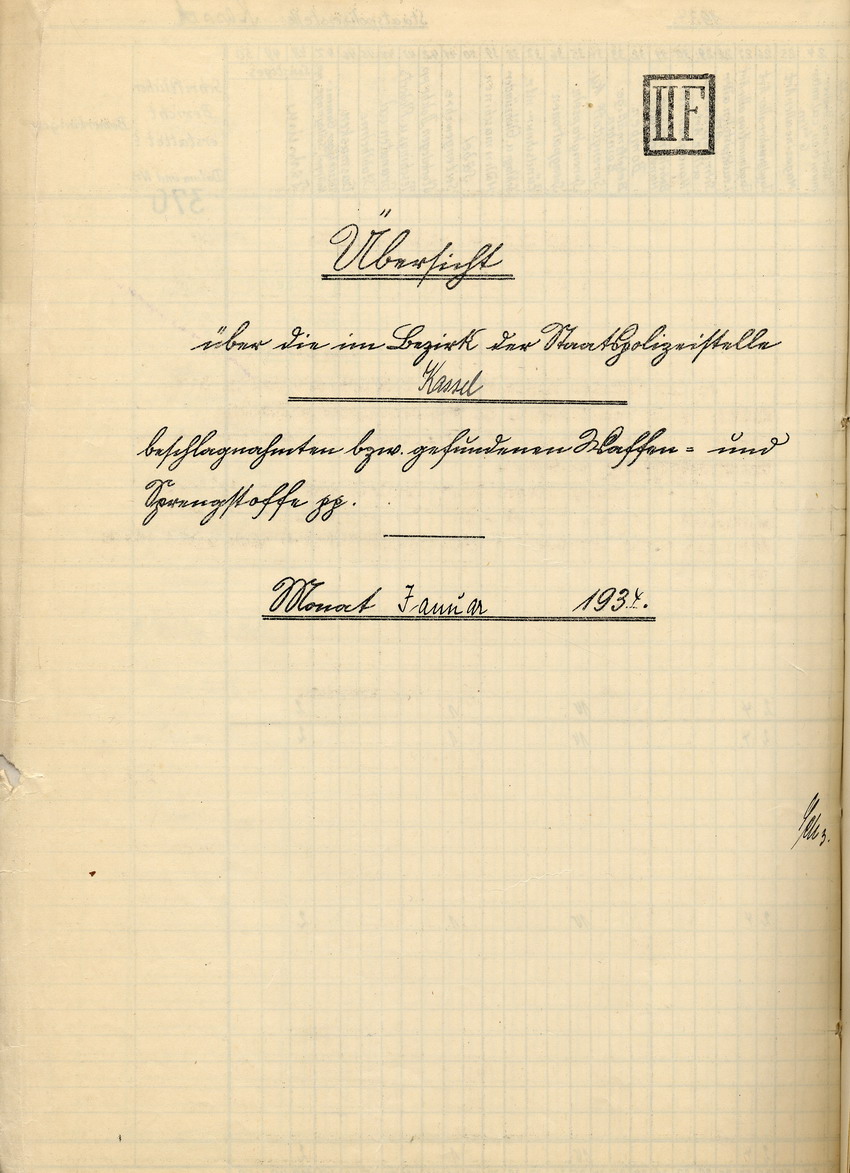 II F
Übersicht
über die im Bezirk der Staatspolizeistelle
Kassel
beschlagnahmten bzw. gefundenen Waffen= und
Sprengstoffe pp.
Monat Januar 1934.